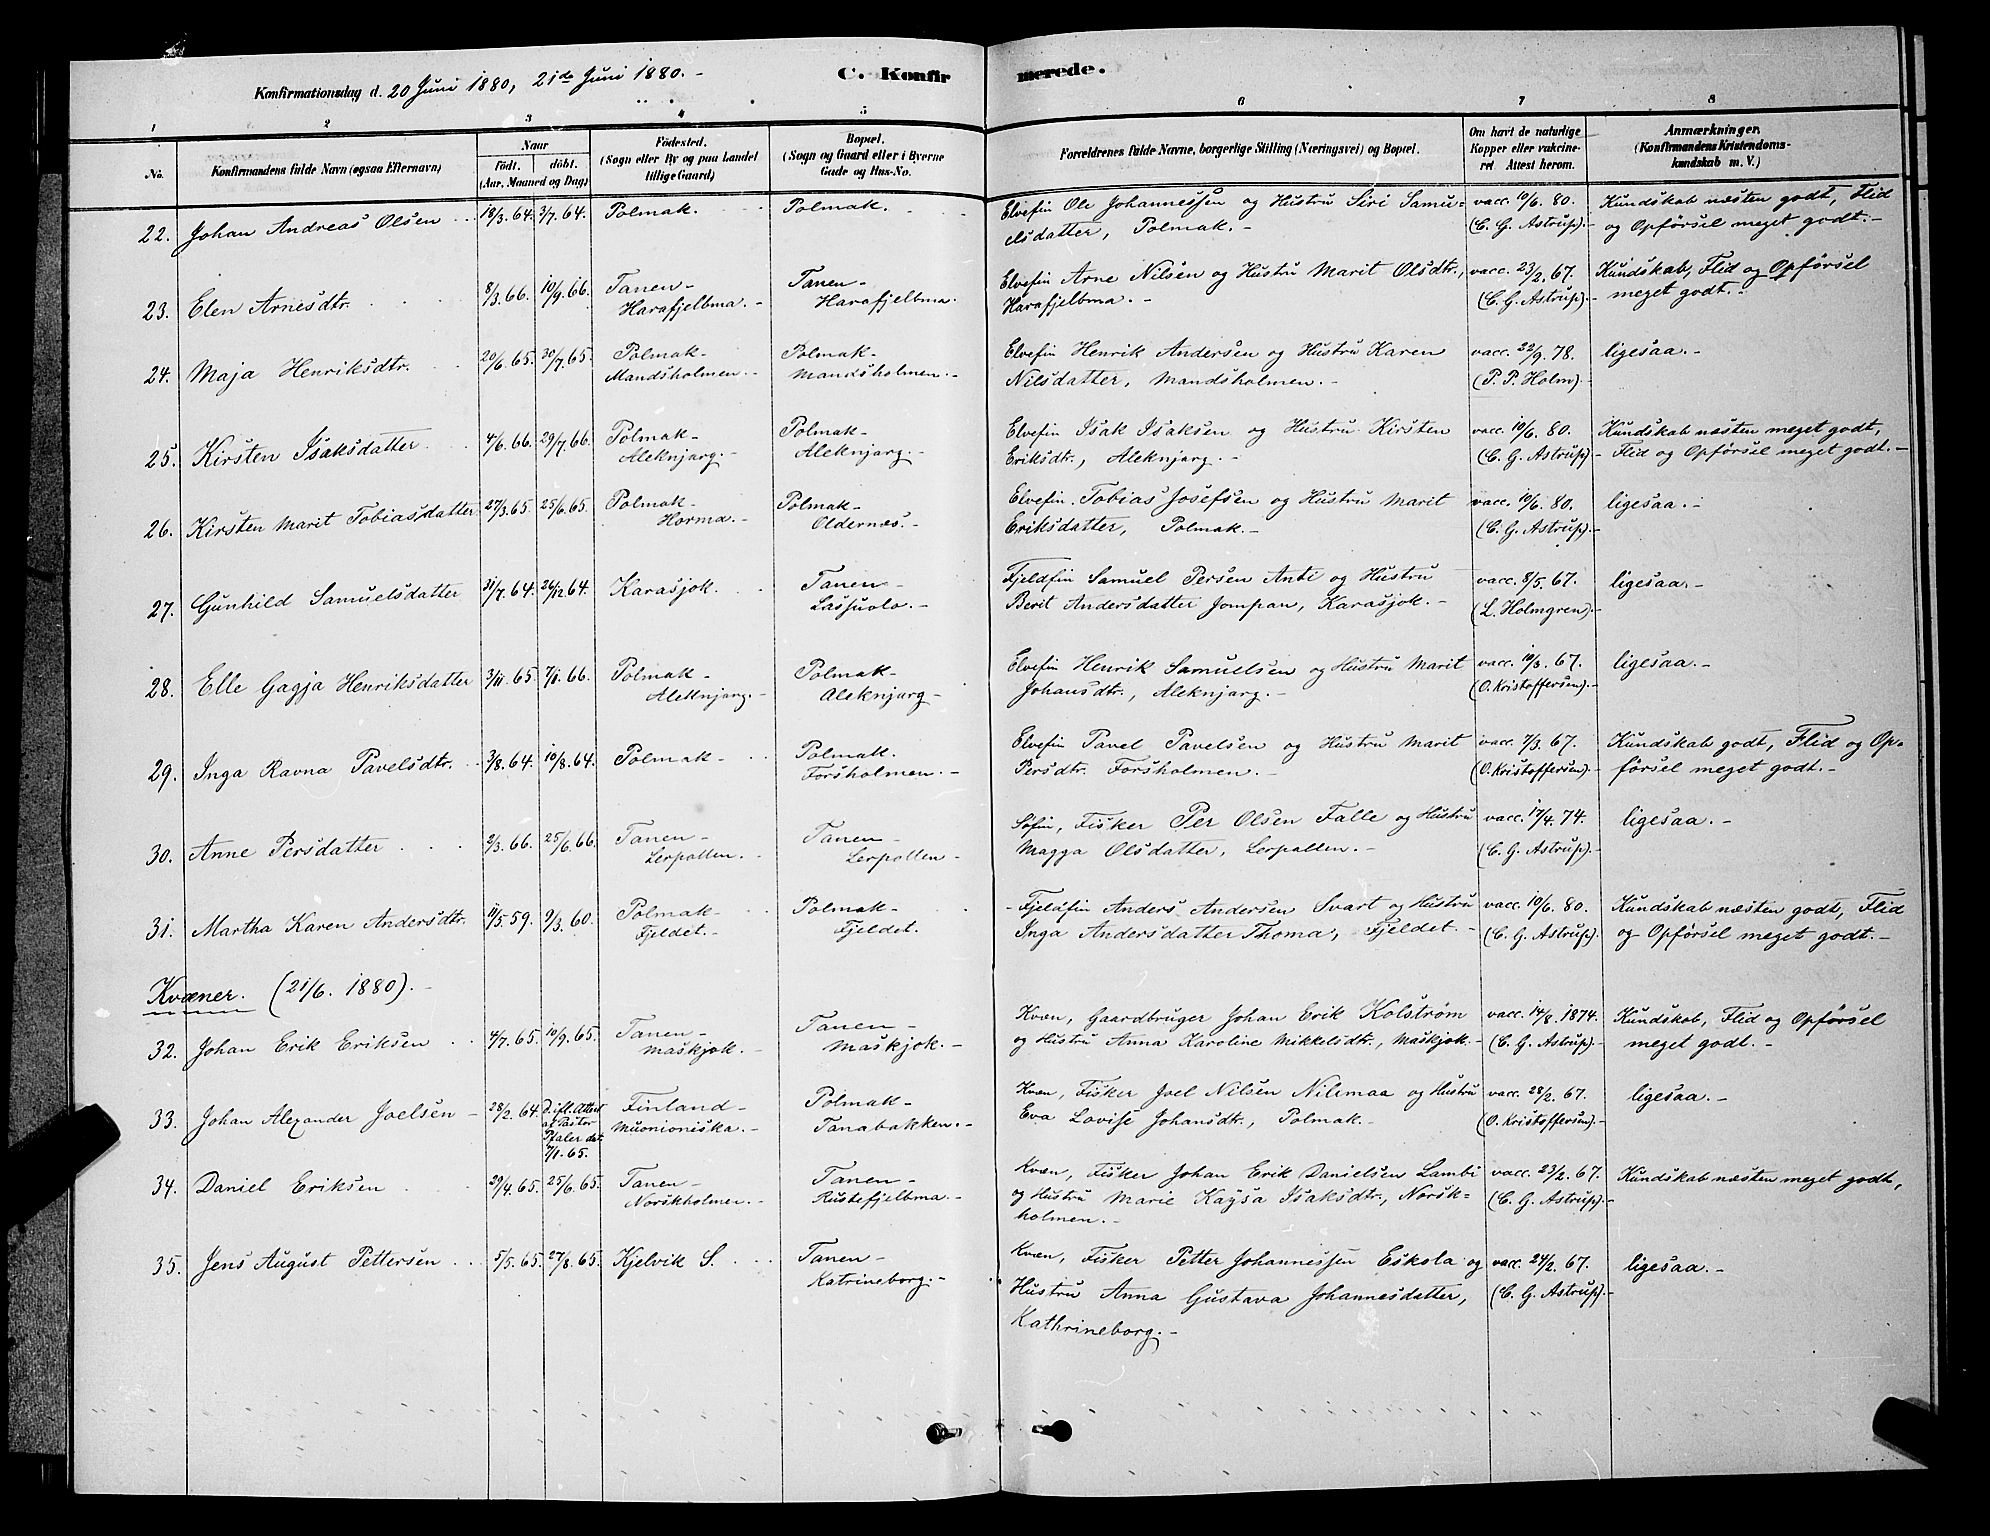 Konfirmationsdag d. 20 Juni 1880, 21de Juni 1880. -
C. Konfirmerede.
1 2 3 4 5 6 7 8
No.
Konfirmandens fulde Navn (ogsaa Efternavn)
Naar
Födt. döbt.
(Aar, Maaned og Dag)
Födested.
(Sogn eller By og paa Landet
tillige Gaard)
Bopæl.
(Sogn og Gaard eller i Byerne
Gade og Hus-No.
Forældrenes fulde Navne, borgerlige Stilling (Næringsvei) og Bopæl.
Om havt de naturlige
Kopper eller vakcine-
ret Attest herom.
Anmærkninger.
(Konfirmandens Kristendoms-
kundskab m. V.)
22. Johan Andreas Olsen 18/3.64. 3/7.64. Polmak. Polmak. Elvefin Ole Johannessen og Hustru Siri Samu- vacc. 10/6. 80. Kundskab næsten godt, Flid
elsdatter, Polmak. - (C. G. Astrup). - og Opførsel meget godt. -
23. Elen Arnesdtr. 8/3.66. 10/9.66. Tanen- Tanen- Elvefin Arne Nilsen og Hustru Marit Olsdtr., vacc. 23/2. 67. Kundskab, Flid og Opførsel
Harafjelbma. - Harafjelbma. Harafjelbma. - (C. G. Astrup). - meget godt. -
24. Maja Henriksdtr. 20/6.65. 30/7.65. Polmak- Polmak- Elvefin Henrik Andersen og Hustru Karen vacc. 22/9. 78. ligesaa. -
Mandsholmen. - Mandsholmen. - Nilsdatter, Mandsholmen. - (P. P. Holm). -
25. Kirsten Isaksdatter. 4/6.66. 29/7.66. Polmak- Polmak- Elvefin Isak Isaksen og Hustru Kirsten vacc. 10/6. 80. Kundskab næsten meget godt,
Aleknjarg. - Aleknjarg. - Eriksdtr., Aleknjarg. - (C. G. Astrup) - Flid og Opførsel meget godt. -
26. Kirsten Marit Tobiasdatter 27/3.65. 25/6.65. Polmak- Polmak- Elvefin Tobias Josefsen og Hustru Marit vacc. 10/6. 80. ligesaa. -
Horma. - Oldernæs. - Eriksdatter, Polmak. - (C. G. Astrup). -
27. Gunhild Samuelsdatter 31/7.64. 26/12.64. Karasjok. Tanen- Fjeldfin Samuel Persen Anti og Hustru vacc. 8/5. 67. ligesaa. -
Lassuolo. - Berit Andersdatter Jompan, Karasjok. - (L. Holmgren). -
28. Elle Gagja Henriksdatter 3/11.65. 7/1.66. Polmak- Polmak- Elvefin Henrik Samuelsen og Hustru Marit vacc. 10/3. 67. ligesaa. -
Aleknjarg. - Aleknjarg - Johansdtr., Aleknjarg. - (O. Kristoffersen). -
29. Inga Ravna Pavelsdtr. 3/8.64. 10/8.64. Polmak- Polmak. Elvefin Pavel Pavelsen og Hustru Marit vacc. 7/3. 67. Kundskab godt, Flid og Op-
Forsholmen. - Persdtr. Forsholmen. - (O. Kristoffersen). - førsel meget godt. -
30. Anne Persdatter 2/3.66. 25/6.66. Tanen- Tanen- Søfin, Fisker Per Olsen Falle og Hustru vacc. 17/4. 74. ligesaa. -
Lerpollen. - Lerpollen - Magga Olsdatter, Lerpollen. - (C. G. Astrup) -
31. Martha Karen Andersdtr. 11/5.59. 9/3.60. Polmak- Polmak- Fjeldfin Anders Andersen Svart og Hustru vacc. 10/6. 80. Kundskab næsten godt, Flid
Fjeldet. - Fjeldet. Inga Andersdatter Thoma, Fjeldet. - (C. G. Astrup). og Opførsel meget godt. -
Kvæner. (21/6. 1880). -
32. Johan Erik Eriksen 4/7.65. 10/9.65. Tanen- Tanen- Kvæn, Gaardbruger Johan Erik Kolstrøm vacc. 14/8. 1874. Kundskab, Flid og Opførsel
Maskjok. - Maskjok. - og Hustru Anna Karoline Mikkelsdtr., Maskjok. - (C. G. Astrup) - meget godt. -
33. Johan Alexander Joelsen - 28/2.64. D. ifl. Attest Finland- Polmak- Kvæn, Fisker Joel Nilsen Nilimaa og Hustru vacc. 28/2. 67. ligesaa. -
af Pastor Muonioniska. Tanabakken. - Eva Lovise Johansdtr., Polmak. - (O. Kristoffersen). -
Pfaler dat.
7/1.65.
34. Daniel Eriksen 29/4.65. 25/6.65. Tanen- Tanen- Kvæn, Fisker Johan Erik Danielsen Lambi vacc. 23/2. 67. Kundskab næsten meget godt,
Norskholmen. - Rustefjelbma. - og Hustru Marie Kaysa Isaksdtr., Norsk- (C. G. Astrup) -
holmen. -
35. Jens August Pettersen 5/5.65. 27/8.65. Kjelvik S. Tanen- Kvæn, Fisker Petter Johannessen Eskola og vacc. 24/2. 67. ligesaa. -
Katrineborg. - Hustru Anna Gustava Johannesdatter, (C. G. Astrup). -
Kathrineborg. -